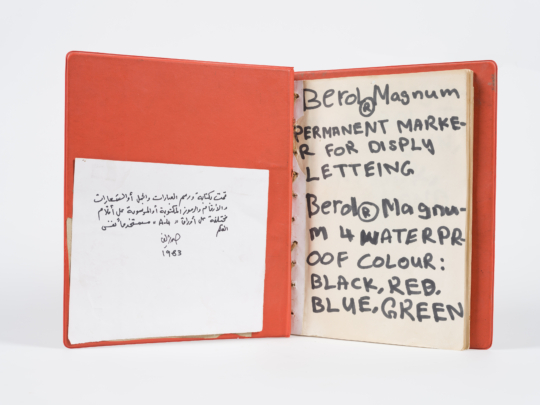 قمت بكتابة ورسم العبارات والجمل أو الشعارات
والأرقام والرموز المكتوبة أو المرسومة على أقلام
مختلفة على أوراق مستخدماً نفس
القلم
1983
Berol®Magnum
PERMANENT MARKE-
R FOR DISPLY
LETTEING
Berol®Magnu-
m 4 WATERPR-
OOF COLOUR:
BLACK, RED.
BLUE, GREEN